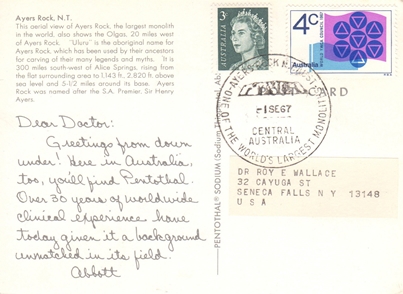 Ayers Rock, N.T.
This aerial view of Ayers Rock, the largest monolith
in the world, also shows the Olgas, 20 miles west
of Ayers Rock. "Uluru" is the aboriginal name for
Ayers Rock, which has been used by their ancestors
for carving of their many legends and myths. It is
300 miles south-west of Alice Springs, rising from
the flat surrounding area to 1,143 ft., 2,820 ft. above
sea level and 5-1/2 miles around its base. Ayers
Rock was named after the S.A. Premier, Sir Henry
Ayers.
Dear Doctor:
Greetings from down
under! Here in Australia,
too, you'll find Pentothal.
Over 30 years of worldwide
clinical experience have
today given it a background
unmatched in its field.
Abbott
PENTOTHAL® SODIUM (Sodium
3c
Australia
4c
Australia
AYERS ROCK
-1 SE 67
CENTRAL
AUSTRALIA
ONE OF THE WORLD'S LARGEST MONOLITHS
CARD
DR ROY E WALLACE
32 CAYUGA ST
SENECA FALLS N Y 13148
U S A